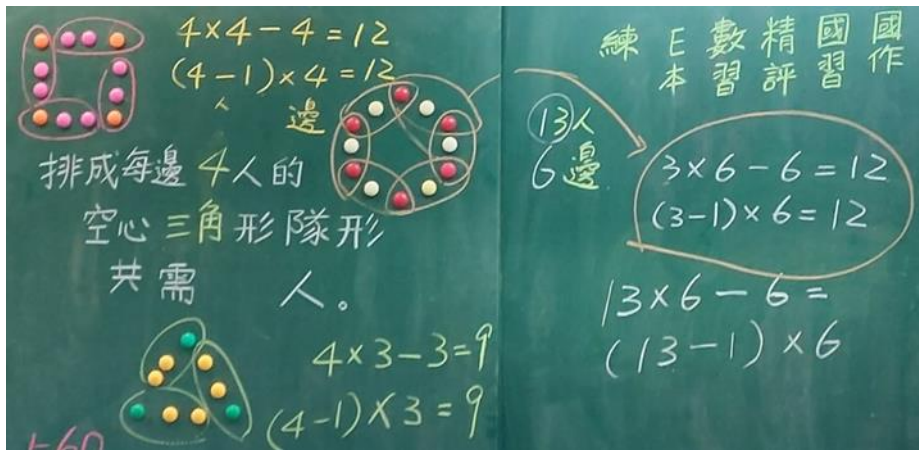 4×4－4=12
(4－1)×4=12
人 邊
排成每邊4人的
空心三角形隊形
共需 人。
4×3－3=9
(4－1)×3=9
練 E本 數習 精評 國習 國作
13人
6邊
3×6－6=12
(3－1)×6=12
13×6－6=
(13－1)×6